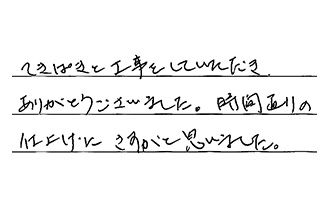 てきぱきと工事をしていただき
ありがとうございました。時間通りの
仕上げに さすがと思いました。